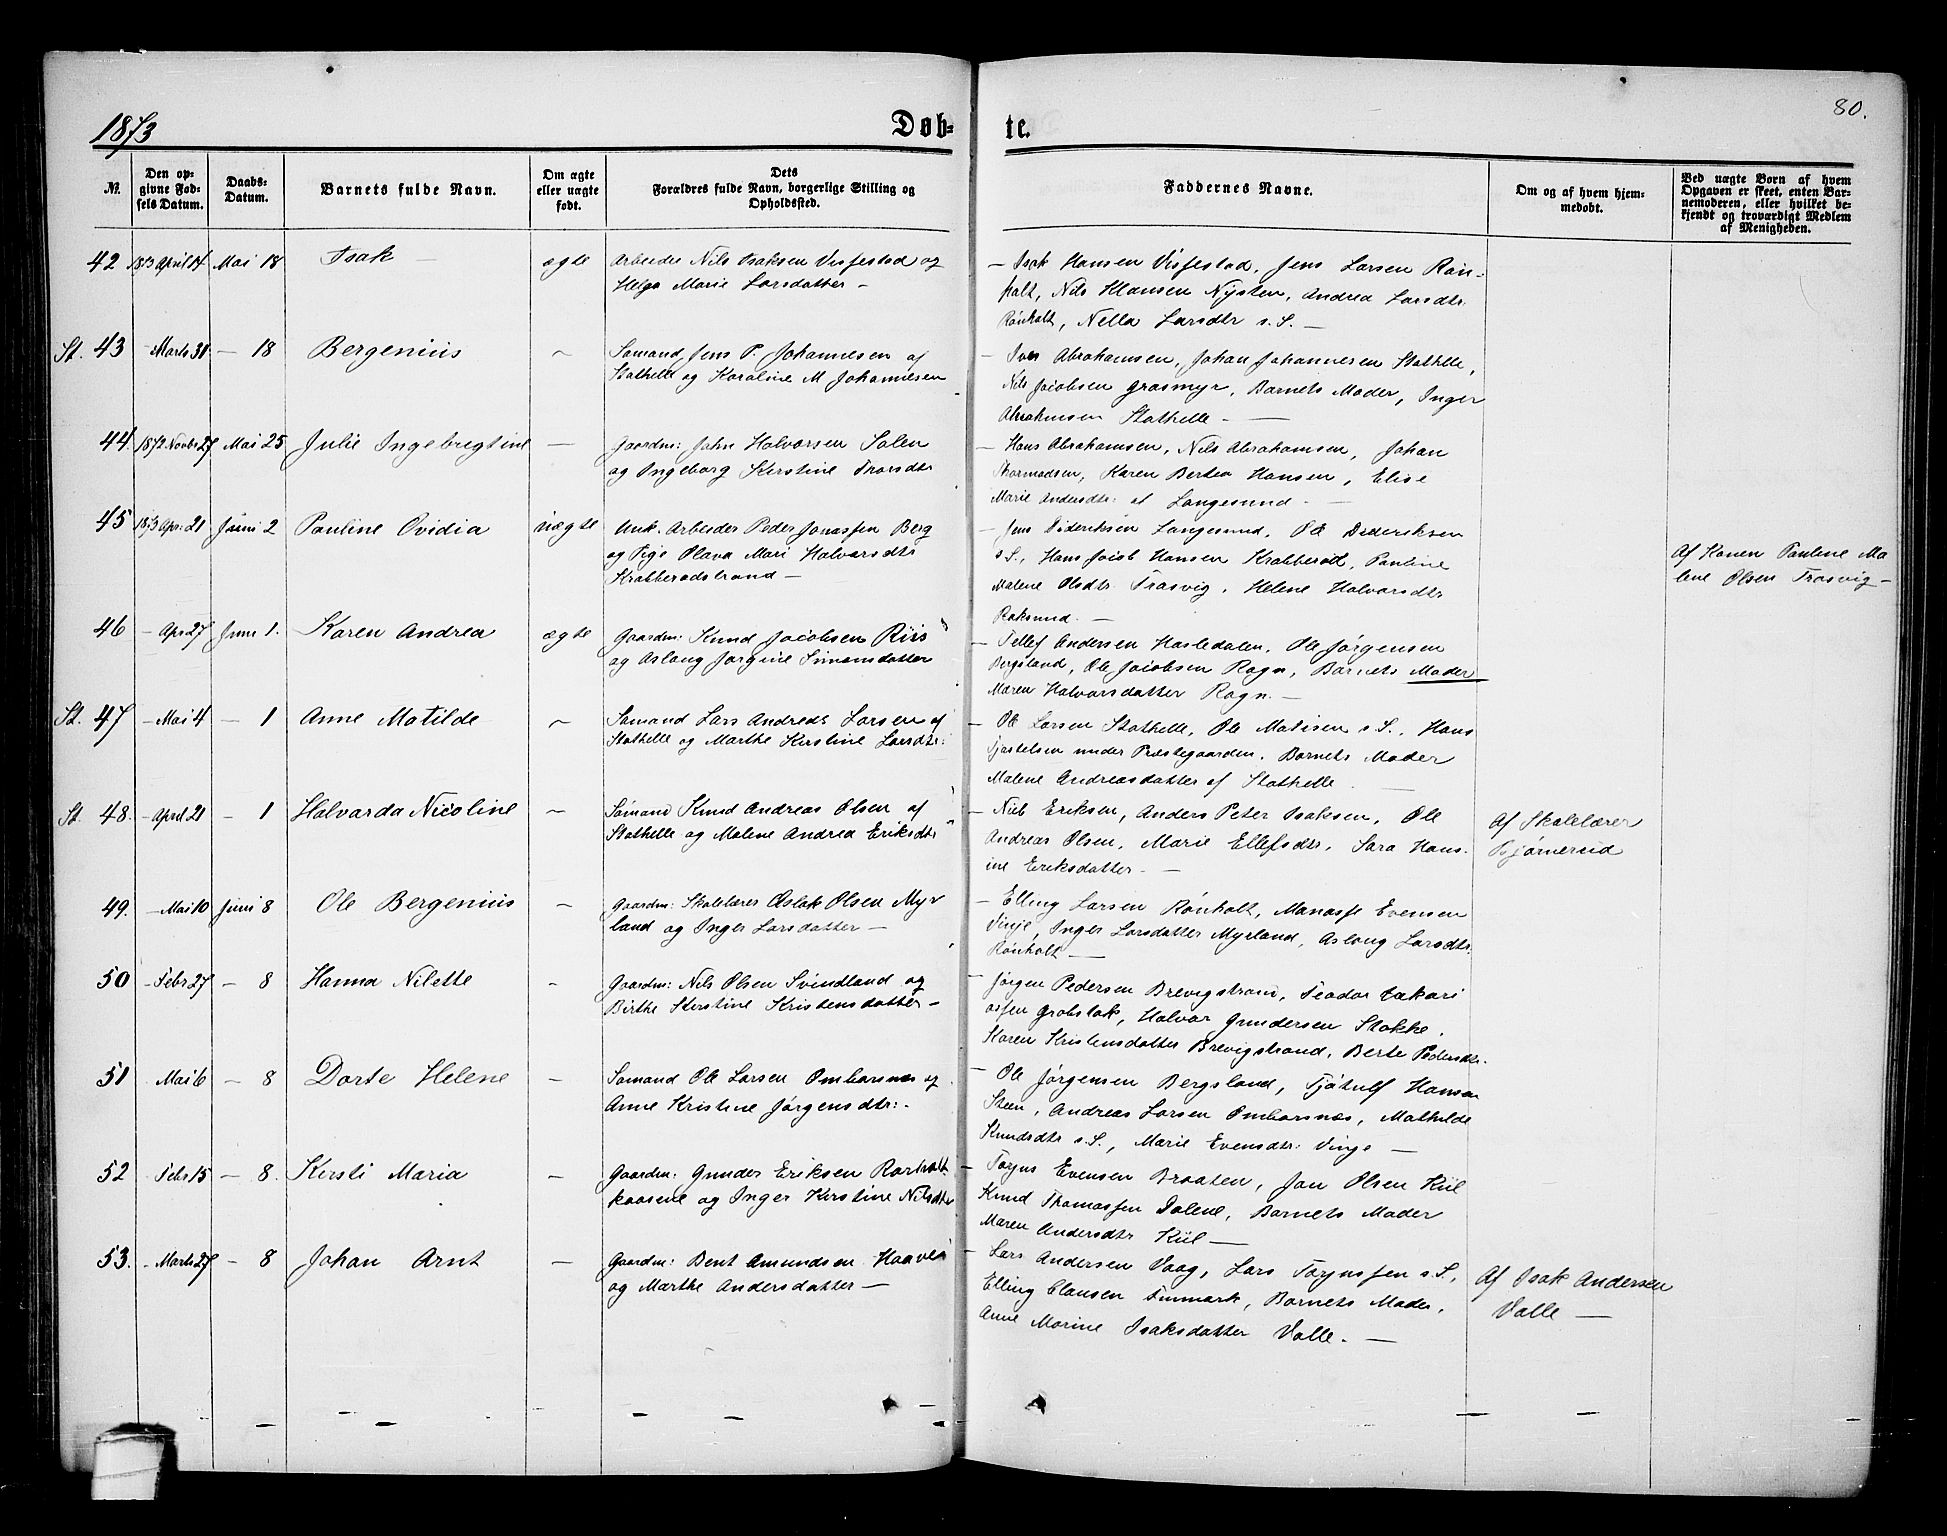 80.
1873 Døb- te.
№. Den opgivne Fødsels Datum. Daabs-Datum. Barnets fulde Navn. Om ægte eller uægte født. Dets Forældres fulde Navn, borgerlige Stilling og Opholdssted. Faddernes Navne. Om og af hvem hjemmedøbt. Ved uægte Børn af hvem Opgaven er skeet, enten Barnemoderen, eller hvilket bekjendt og troværdigt Medlem af Menigheden.
42 1873 April 14 Mai 18 Isak — ægte Arbeider Nils Isaksen Visfestad og
Helga Marie Larsdatter —
— Isak Hansen Visfestad, Jens Larsen Røn-
holt, Nils Hansen Nysten, Andrea Larsdtr
Rønholt, Nella Larsdtr s. S. —
St. 43 — Marts 31 — 18 Bergenius ~ Sømand Jens P. Johannesen af
Stathelle og Karoline M Johannesen
— Iver Abrahamsen, Johan Johannesen Stathelle,
Nils Jacobsen Grasmyr, Barnets Moder, Inger
Abrahamsen Stathelle —
44. 1872 Novbr 27 Mai 25 Julie Ingebrigtine — Gaardm: John Halvorsen Salen
og Ingeborg Kerstine Thorsdtr
— Hans Abrahamsen, Nils Abrahamsen, Johan
Thormodsen, Karen Bertea Hansen, Elise
Marie Andersdtr: af Langesund —
45 1873 Apr. 21 Juni 2 Pauline Ovidia uægte Unk. Arbeider Peder Jonassen Berg
og Pige Olava Mari Halvorsdtr
Krabberødstrand —
— Jens Dideriksen Langesund, Ole Dideriksen
s. S., Hans Jacob Hansen Krabberød, Pauline
Malene Olsdtr Trosvig, Helene Halvorsdtr
Roksund. —
Af Konen Paulene Ma
lene Olsen Trosvig —
46 — Apr 27 Juni 1. Karen Andrea ægte Gaardm: Knud Jacobsen Riis
og Aslaug Jørgine Simonsdatter
— Tellef Andersen Hasledalen, Ole Jørgensen
Bergsland, Ole Jacobsen Rogn, Barnets Moder
Maren Halvorsdatter Rogn. —
St. 47 — Mai 4 — 1 Anne Matilde ~ Sømand Lars Andreas Larsen af
Stathelle og Marthe Kirstine Larsdtr:
— Ole Larsen Stathelle, Ole Matisen s. S., Hans
under Præstegaarden, Barnets Moder
Malene Andreasdatter af Stathelle —
St. 48. — April 21 — 1 Halvarda Nicoline ~ Sømand Knud Andreas Olsen af
Stathelle og Malene Andrea Eriksdtr
— Niels Eriksen, Anders Peter Isaksen, Ole
Andreas Olsen, Marie Ellefsdtr, Sara Hans-
ine Eriksdatter. —
Af Skolelærer
Bjørnerød
49. — Mai 10 Juni 8 Ole Bergenius — Gaardm: Skolelærer Aslak Olsen Myr
land og Inger Larsdatter —
— Elling Larsen Rønholt, Manasse Evensen
Vinje, Inger Larsdatter Myrland, Aslaug Larsdtr
Rønholt —
50 — Febr 27 — 8 Hanna Nilette — Gaardm: Nils Olsen Svindland og
Birthe Kerstine Kristensdatter —
— Jørgen Pedersen Brevigstrand, Teodor Zakari
assen Grobstok, Halvor Gundersen Stokke,
Karen Kristensdatter Brevigstrand, Berte Pedersdtr.
51 Mai 6 — 8 Dorte Helene — Sømand Ole Larsen Ombørsnes og
Anne Kristine Jørgensdtr: —
— Ole Jørgensen Bergsland, Tjøtulf Hansen
Steen, Andreas Larsen Ombørsnæs, Mathilde
Knudsdtr s. S., Marie Evensdtr: Vinje —
52 Febr 15 — 8. Kirsti Maria — Gaardm: Gunder Eriksen Rørholt
kaasene og Inger Kirstine Nilsdtr
— Torjus Evensen Braaten, Jan Olsen Kiil
Knud Thomassen Dalene, Barnets Moder
Maren Andersdtr Kiil —
53. — Marts 27 — 8 Johan Arnt — Gaardm: Bent Amundsen
og Marthe Andersdatter —
— Lars Andersen Vaag, Lars Torjussen s. S.,
Elling Clausen Finmark, Barnets Moder,
Anne Marine Isaksdatter Valle. —
Af Isak Andersen
Valle —